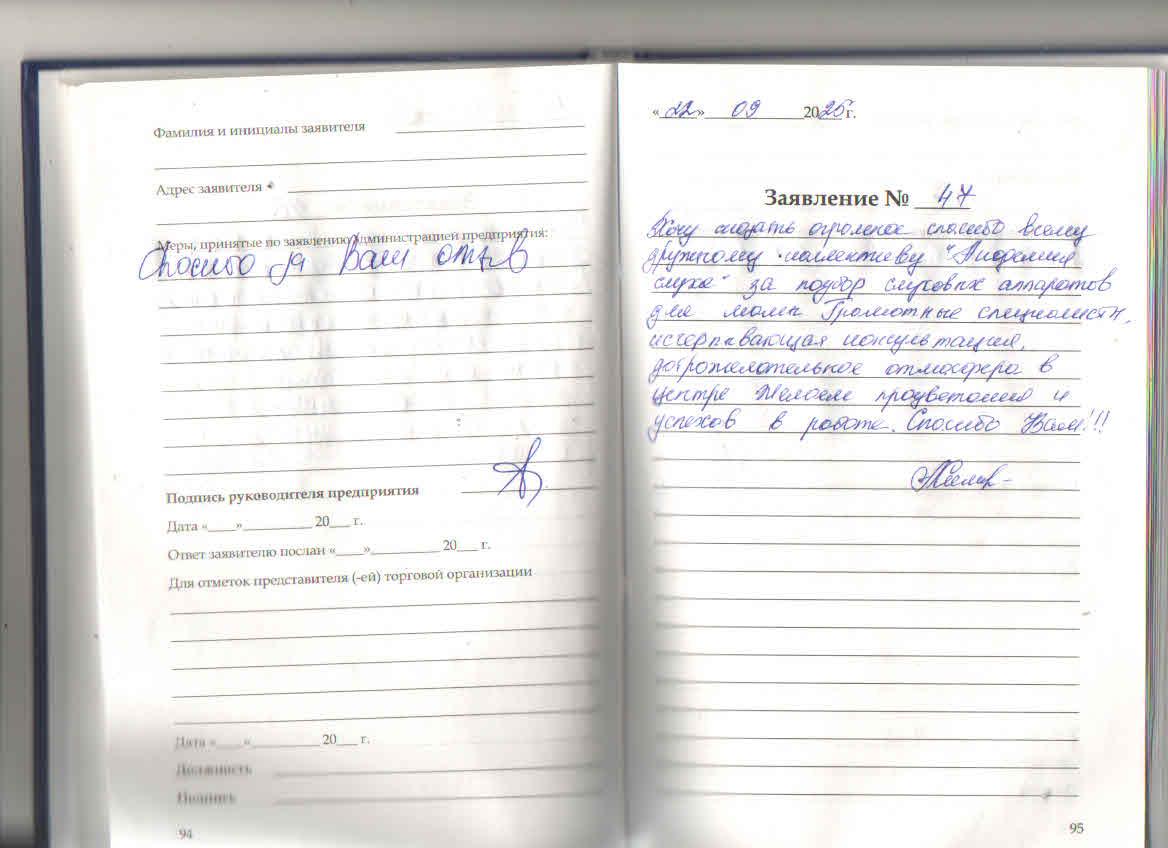 Фамилия и инициалы заявителя
Адрес заявителя
Меры, принятые по заявлению администрацией предприятия:
Спасибо за Ваш отзыв
Подпись руководителя предприятия
Дата «____»__________ 20___ г.
Ответ заявителю послан «____»__________ 20___ г.
Для отметок представителя (-ей) торговой организации
Дата «____«__________ 20___ г.
Должность
Подпись
94
«22» 09 2025 г.
Заявление № 47
Хочу сказать огромное спасибо всему
дружному коллективу "Академия
слуха" за подбор слуховых аппаратов
для мамы. Грамотные специалисты,
исчерпывающая консультация,
доброжелательное атмосфера в
центре. Желаем процветания и
успехов в работе. Спасибо Вам!!!
95